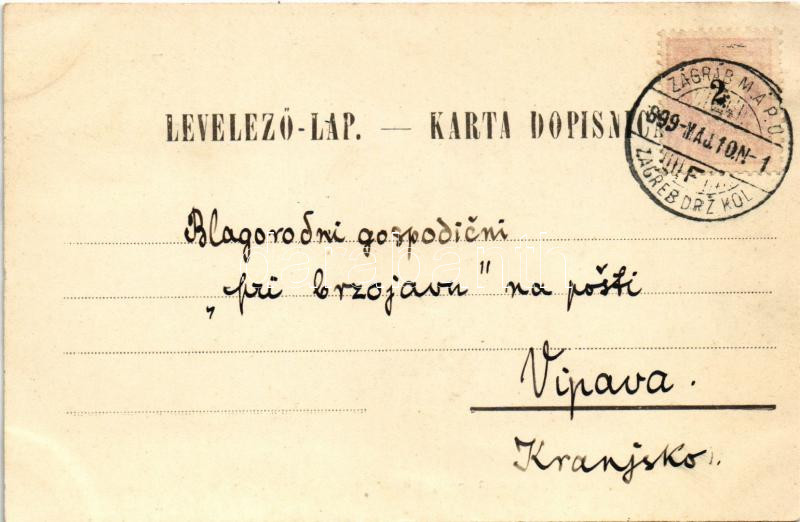 ZÁGRÁB M.Á.P.U.
2
899-MÁJ.10.N-1
F
ZAGREB DRŽ KOL
LEVELEZŐ-LAP. — KARTA DOPISNICA
Blagorodni gospodični
„pri brzojavu" na pošti
Vipava.
Kranjsko.